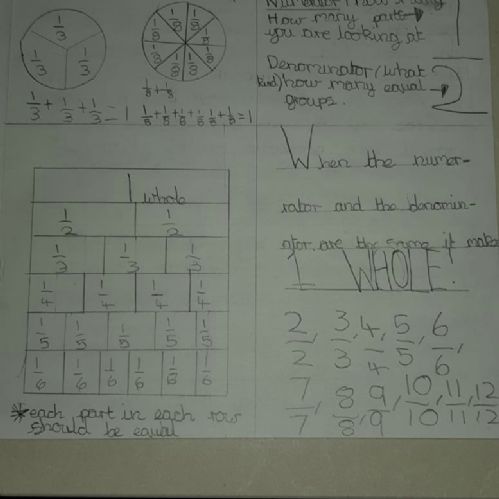 1/3
1/3 1/3
1/3 + 1/3 + 1/3 = 1
1/8 1/8
1/8 1/8
1/8 1/8
1/8 1/8
How many parts
you are looking at
Denominator/what
kind/how many equal
groups.
2
1 whole
1/2 1/2
1/3 1/3 1/3
1/4 1/4 1/4 1/4
1/5 1/5 1/5 1/5 1/5
1/6 1/6 1/6 1/6 1/6 1/6
*each part in each row
should be equal
When the numer-
rator and the denomin-
ator are the same it makes
1 WHOLE.
2/2, 3/3, 4/4, 5/5, 6/6,
7/7, 8/8, 9/9, 10/10, 11/11, 12/12